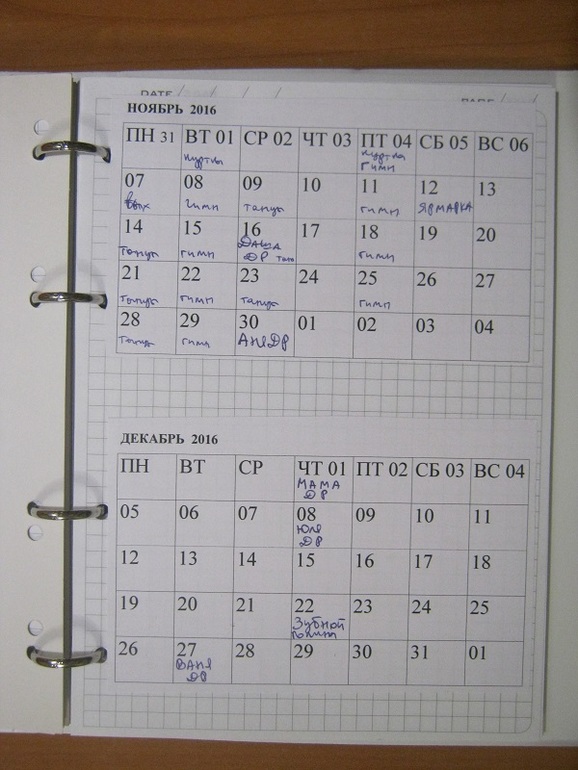 DATE
НОЯБРЬ 2016
ПН 31 ВТ 01 СР 02 ЧТ 03 ПТ 04 СБ 05 ВС 06
куртка куртка
гимн
07 08 09 10 11 12 13
вых гимн танцы гимн ЯРМАРКА
14 15 16 17 18 19 20
танцы гимн ДАША гимн
ДР тан
21 22 23 24 25 26 27
танцы гимн танцы гимн
28 29 30 01 02 03 04
танцы гимн АНЯ ДР
ДЕКАБРЬ 2016
ПН ВТ СР ЧТ 01 ПТ 02 СБ 03 ВС 04
МАМА
ДР
05 06 07 08 09 10 11
Юля
ДР
12 13 14 15 16 17 18
19 20 21 22 23 24 25
Зубной
26 27 28 29 30 31 01
ВАНЯ
ДР